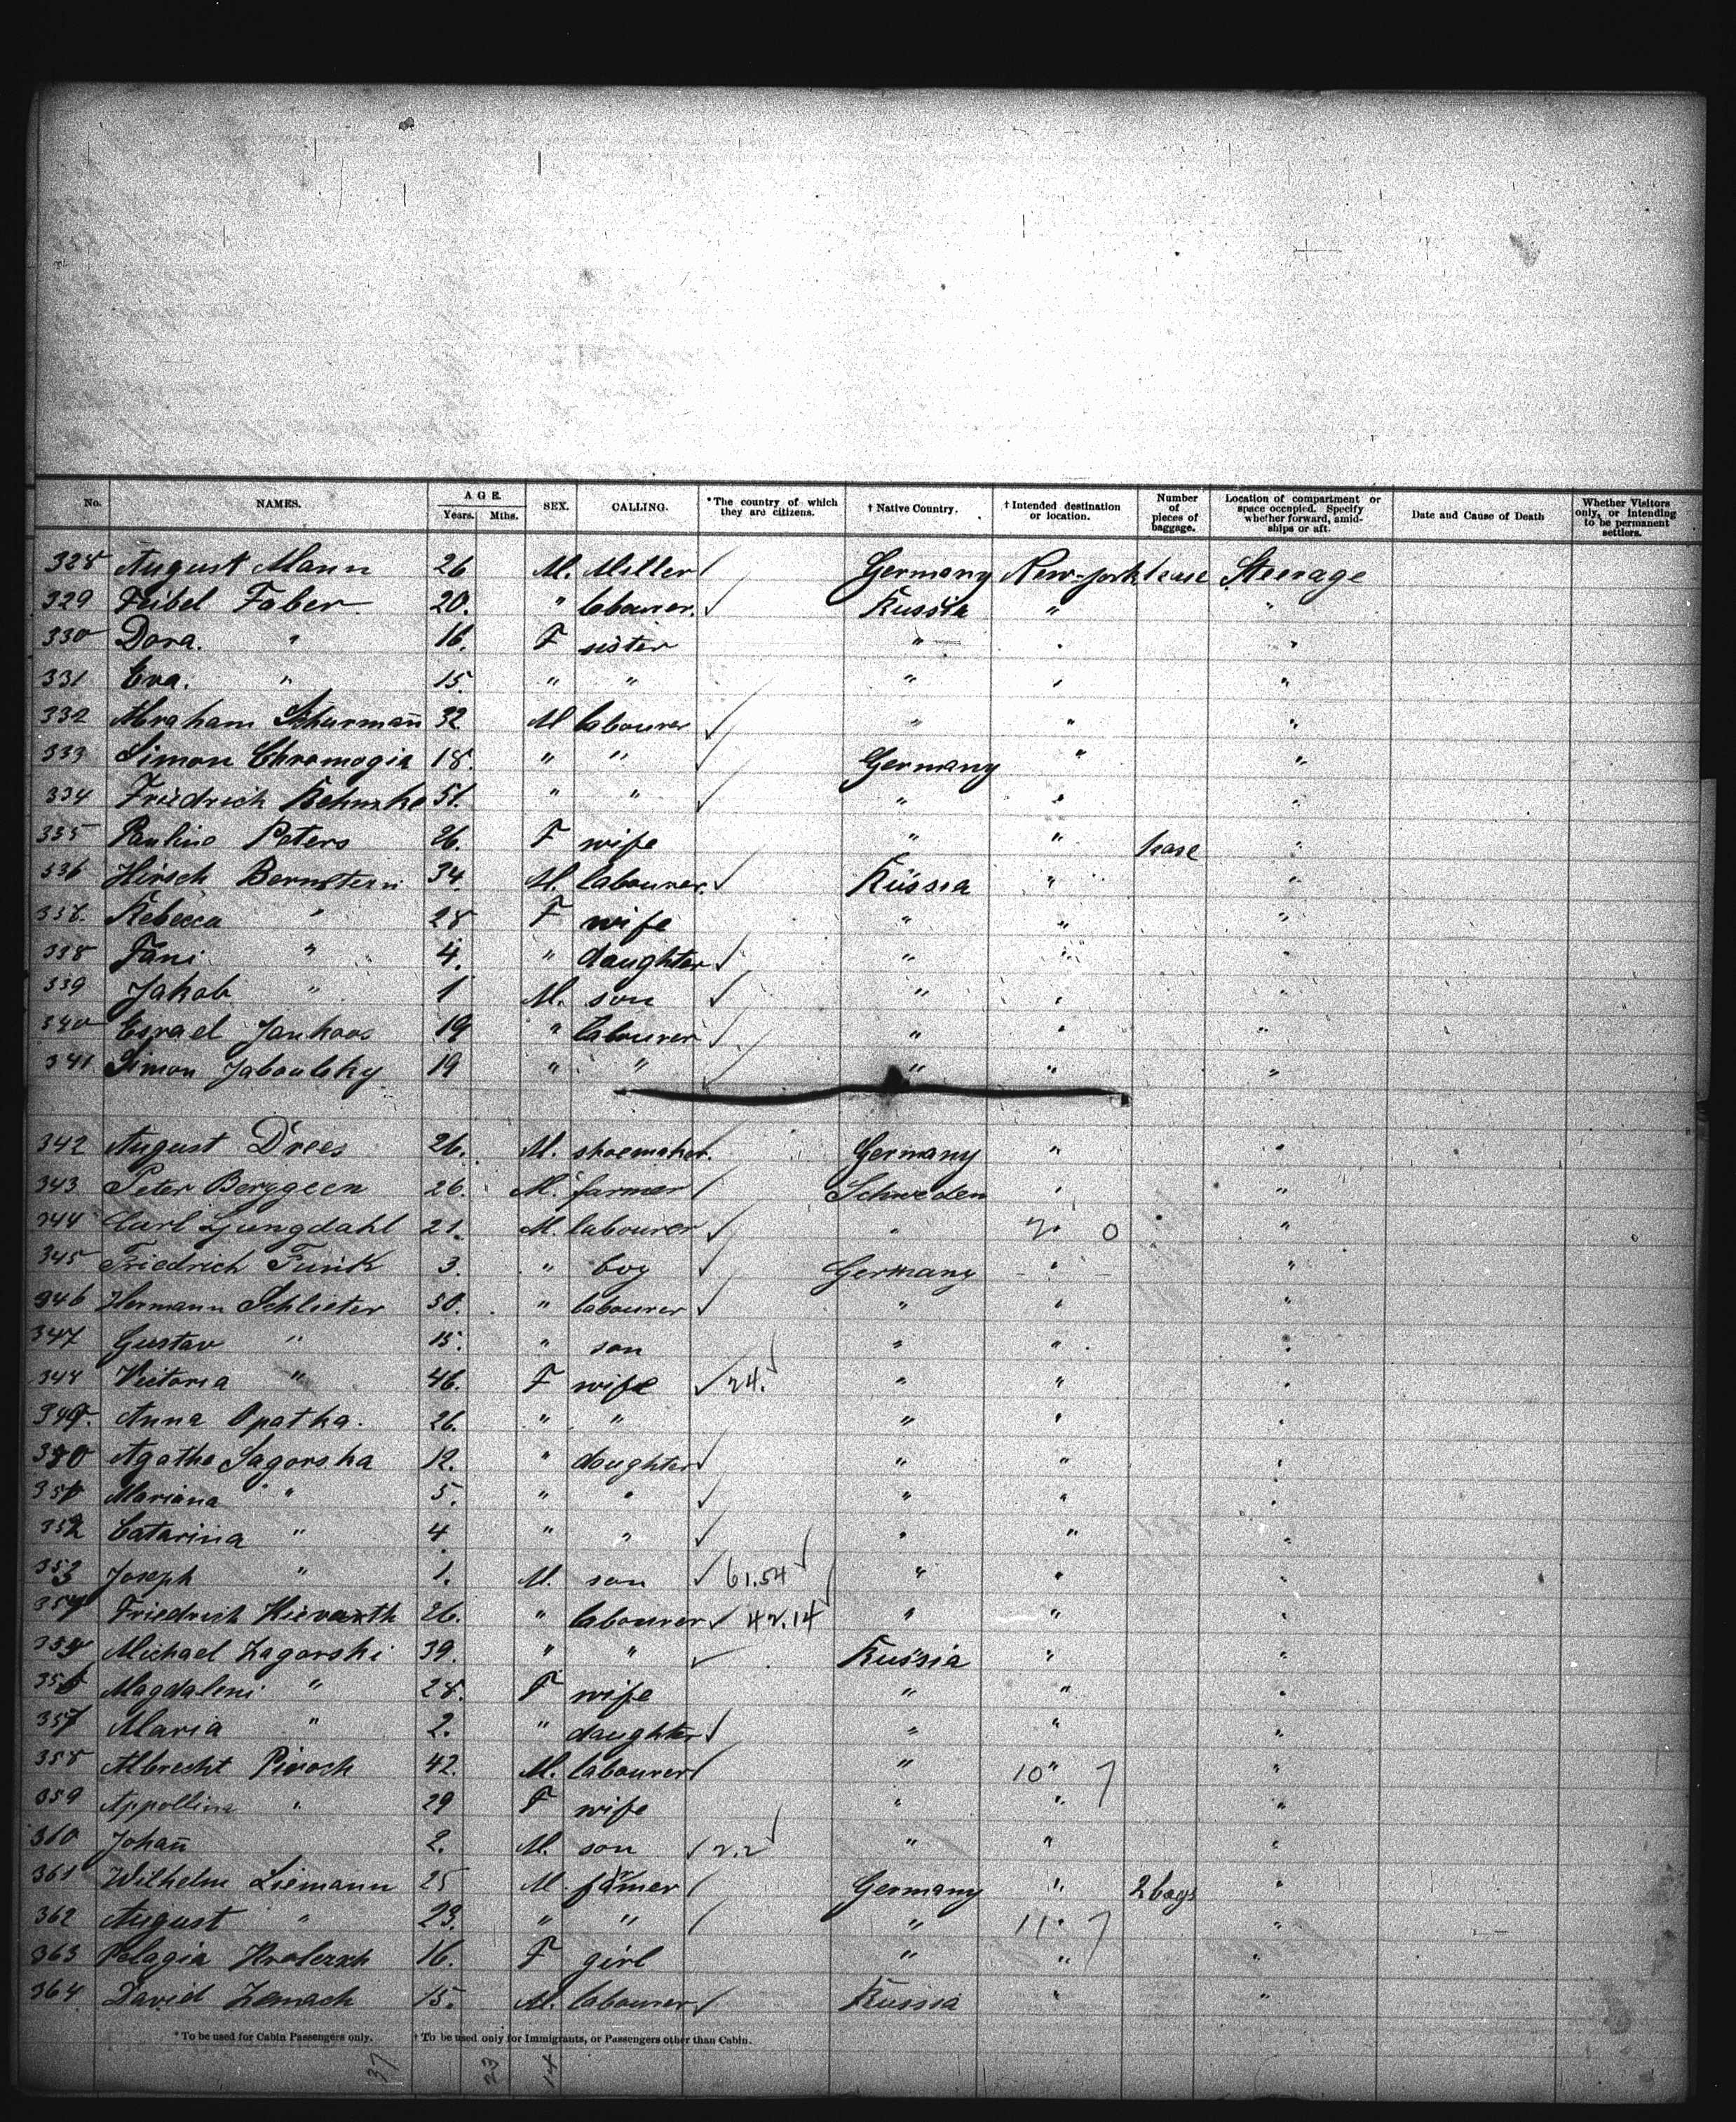 No. NAMES. AGE. Years. Mths. SEX. CALLING. *The country of which they are citizens. † Native Country. † Intended destination or location. Number of pieces of baggage. Location of compartment or space occupied. Specify whether forward, amidships or aft. Date and Cause of Death Whether Visitors only, or intending to be permanent settlers.
328 August Mann 26 M. Miller Germany New-York 1 case Steerage
329 Feibel Faber 20. " labourer. Russia " "
330 Dora. " 16. F sister " " "
331 Eva. " 15. " " " " "
332 Abraham Schurman̄ 32 M labourer " " "
333 Simon Chromogia 18. " " Germany " "
334 Friedrich 51. " " " " "
335 Pauline Peters 26. F wife " " 1 case "
336 Hirsch Bernstein 34. M. labourer. Russia " "
337. Rebecca " 28 F wife " " "
338 Fani " 4. " daughter " " "
339 Jakob " 1 M. son " " "
340 Esrael 19 " labourer " " "
341 Simon 19 " " " " "
342 August Drees 26. M. shoemaker. Germany " "
343 Peter 26. M. farmer Schweden " "
344 Carl Ljungdahl 21. M. labourer " " 0 "
345 Friedrich Funk 3. " boy Germany " "
346 Hermann Schlieter 50. " labourer " " "
347 Gustav " 15. " son " " "
348 Victoria " 46. F wife 24. " " "
349. Anna Opatka. 26. " " " " "
350 Agathe Sagorska 12. " daughter " " "
351 Mariana " 5. " " " " "
352 Catarina " 4. " " " " "
353 Joseph " 1. M. son 61.54 " " "
354 Friedrich 26. " labourer 42.14 " " "
355 Michael Zagorski 39. " " Russia " "
356 Magdaleni " 28. F wife " " "
357 Maria " 2. " daughter " " "
358 Albrecht Piroch 42. M. labourer " 10 " 7 "
359 Appollina " 29 F wife " " "
360 Johan̄ 2. M. son 2.2 " " "
361 Wilhelm Liemann 25 M. farmer Germany " 2 bags "
362 August " 23. " " " 11 " 7 "
363 Pelagia 16. F girl " " "
364 David Zemach 15. M. labourer Russia " "
* To be used for Cabin Passengers only. † To be used only for Immigrants, or Passengers other than Cabin.
37 23 14